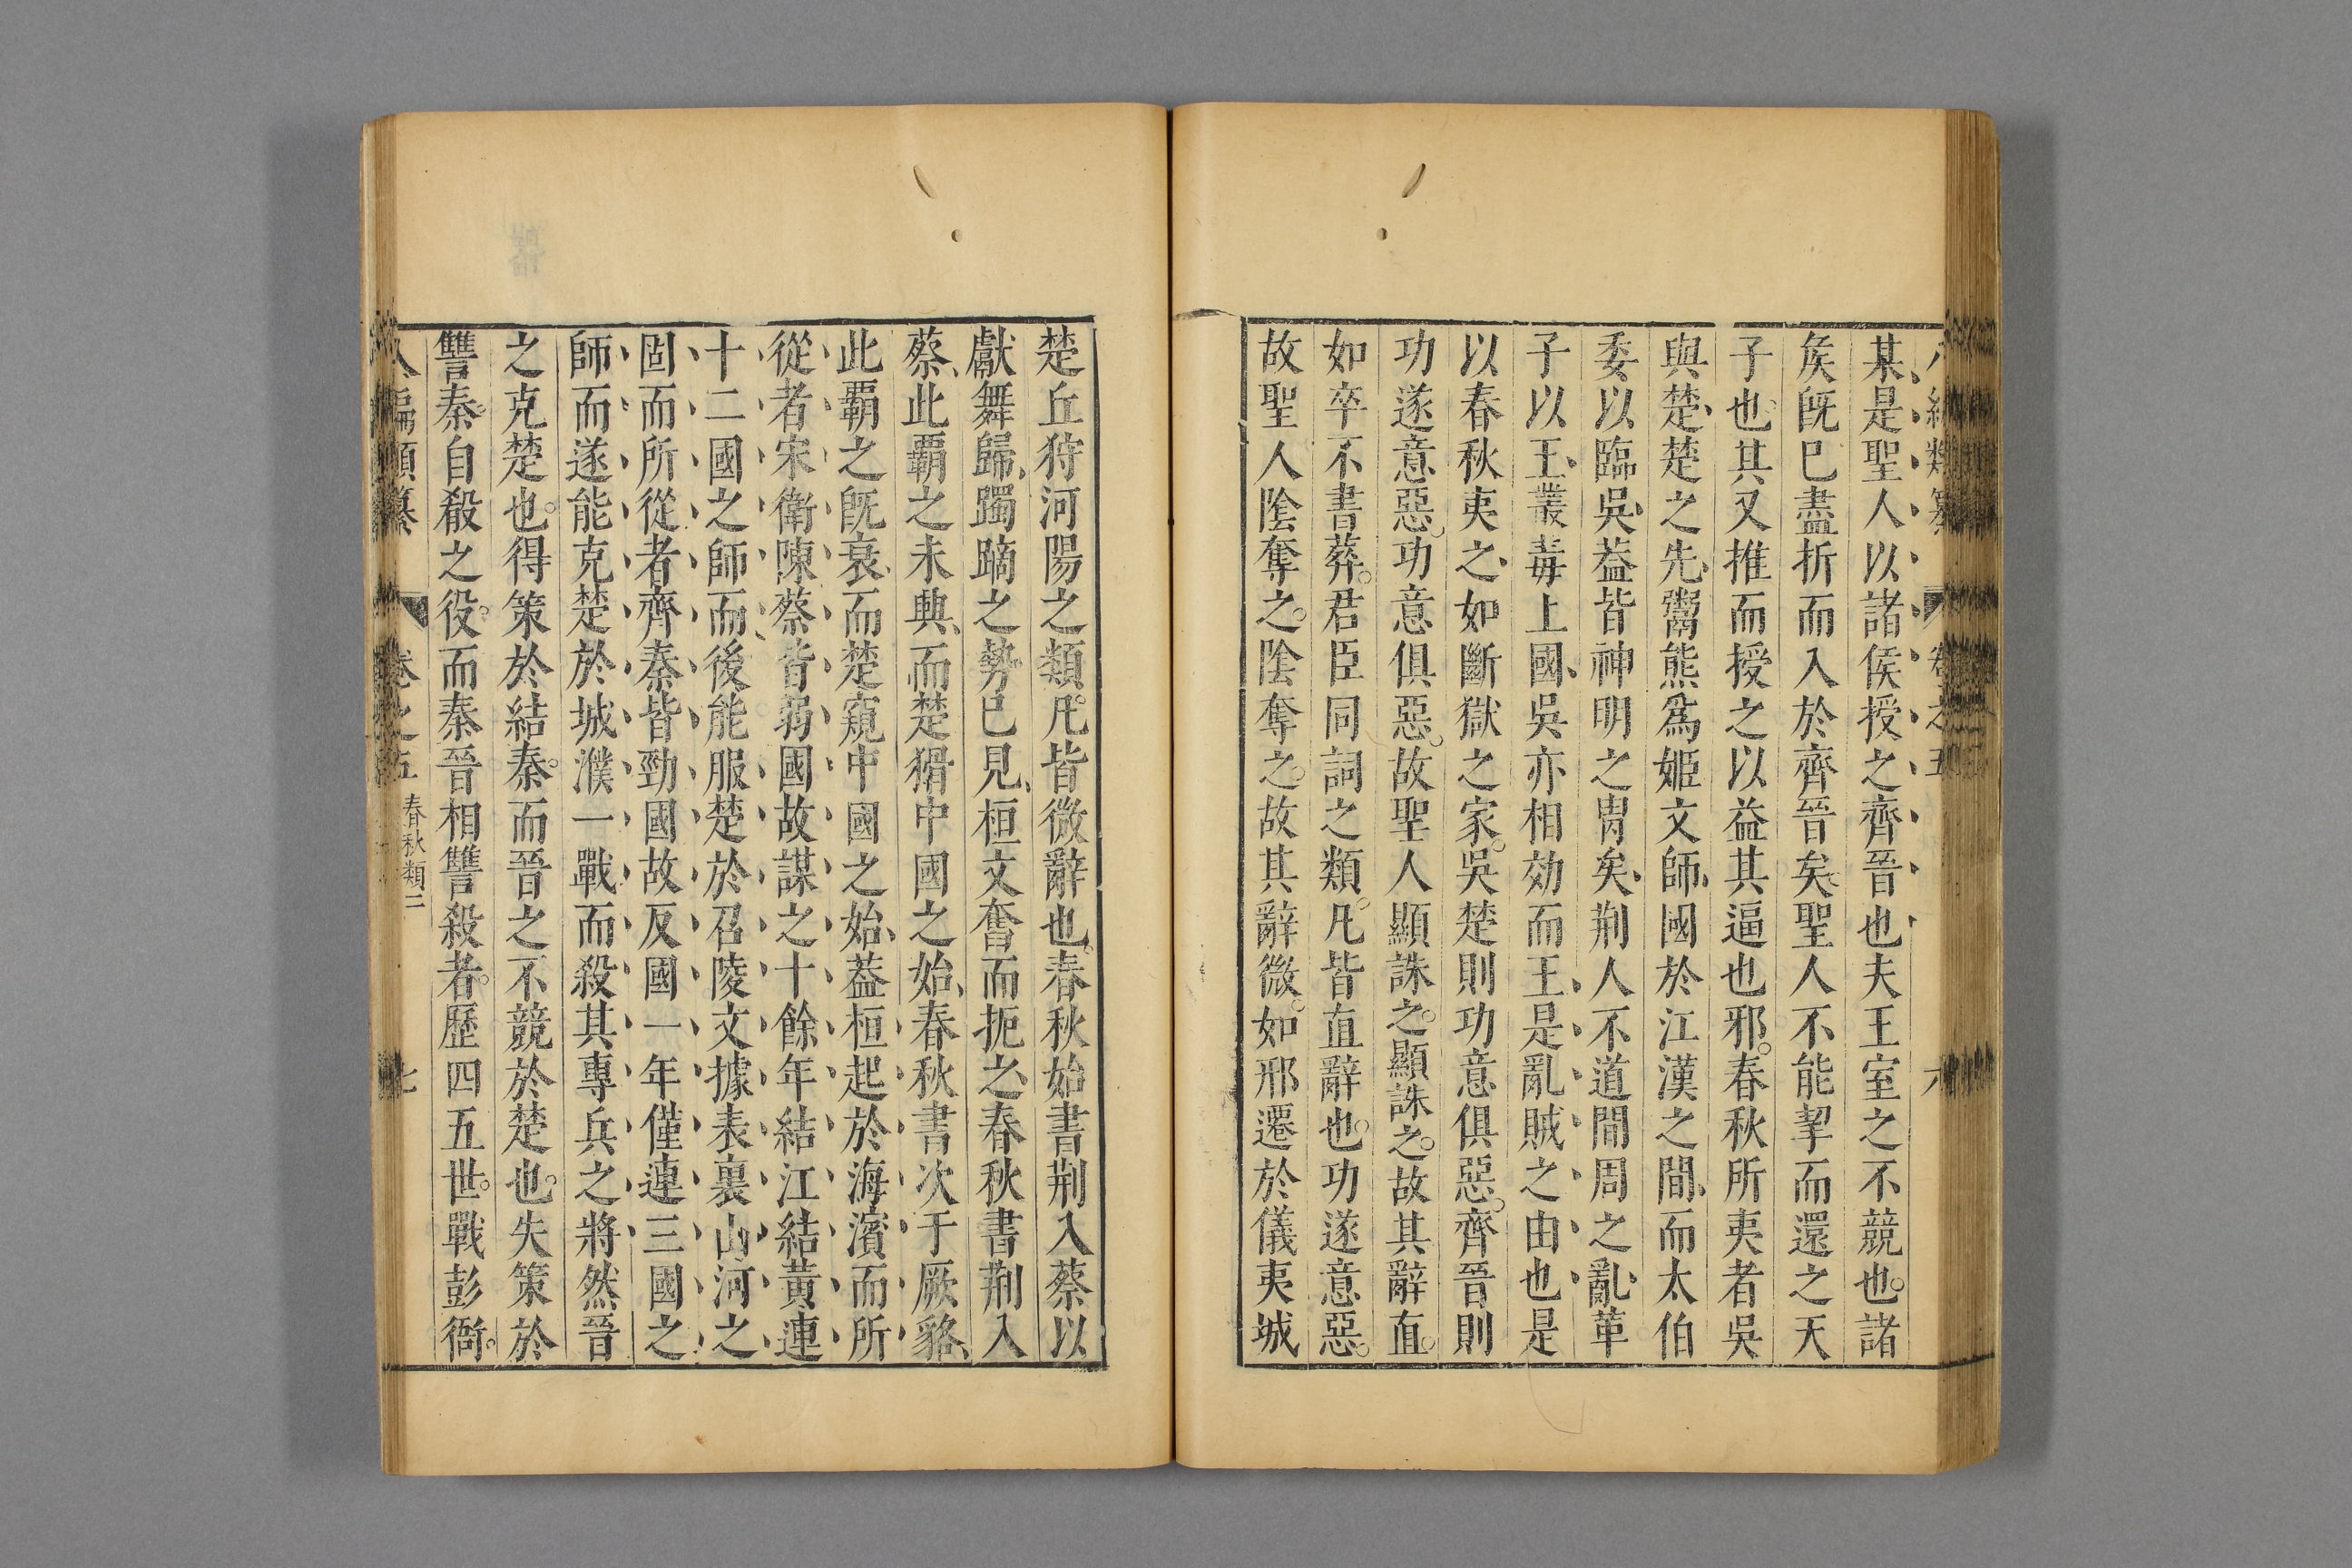 某是聖人以諸侯授之齊晉也夫王室之不競也諸
矦旣已盡折而入於齊晉矣聖人不能挈而還之天
子也其又推而授之以益其逼也邪春秋所夷者吳
與楚楚之先鬻熊爲姬文師國於江漢之間而太伯
委以臨吳葢皆神明之冑矣荆人不道間周之亂革
子以王叢毒上國吳亦相効而王是亂賊之由也是
以春秋夷之如斷獄之家吳楚則功意俱惡齊晉則
功遂意惡功意俱惡故聖人顯誅之顯誅之故其辭直
如卒不書葬君臣同詞之類凡皆直辭也功遂意惡
故聖人隂奪之隂奪之故其辭微如邢遷於儀夷城
楚丘狩河陽之類凡皆微辭也春秋始書荆入蔡以
獻舞歸躅蹢之勢已見桓文奮而扼之春秋書荆入
蔡此覇之未興而楚猾中國之始春秋書次于厥貉
此覇之旣衰而楚窺中國之始葢桓起於海濱而所
從者宋衛陳蔡皆弱國故謀之十餘年結江結黃連
十二國之師而後能服楚於召陵文據表裏山河之
固而所從者齊秦皆勁國故反國一年僅連三國之
師而遂能克楚於城濮一戰而殺其專兵之將然晉
之克楚也得策於結秦而晉之不競於楚也失策於
讐秦自殽之役而秦晉相讐殺者歷四五世戰彭衙
卷之五 春秋類二
七